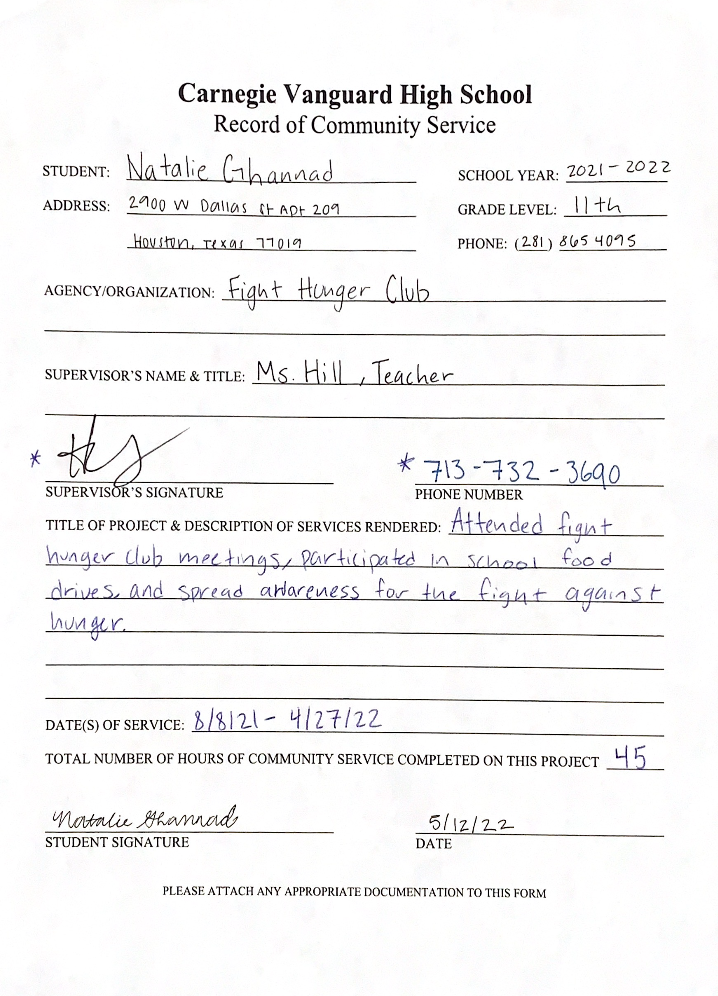 Carnegie Vanguard High School
Record of Community Service
STUDENT: Natalie Ghannad
SCHOOL YEAR: 2021-2022
ADDRESS: 2900 W Dallas St Apt 209
GRADE LEVEL: 11th
Houston, Texas 77019
PHONE: (281) 865 4095
AGENCY/ORGANIZATION: Fight Hunger Club
SUPERVISOR'S NAME & TITLE: Ms. Hill, Teacher
*
* 713-732-3690
SUPERVISOR'S SIGNATURE
PHONE NUMBER
TITLE OF PROJECT & DESCRIPTION OF SERVICES RENDERED: Attended fight
hunger club meetings, participated in school food
drives, and spread awareness for the fight against
hunger.
DATE(S) OF SERVICE: 8/8/21 - 4/27/22
TOTAL NUMBER OF HOURS OF COMMUNITY SERVICE COMPLETED ON THIS PROJECT 45
Natalie Ghannad
5/12/22
STUDENT SIGNATURE
DATE
PLEASE ATTACH ANY APPROPRIATE DOCUMENTATION TO THIS FORM